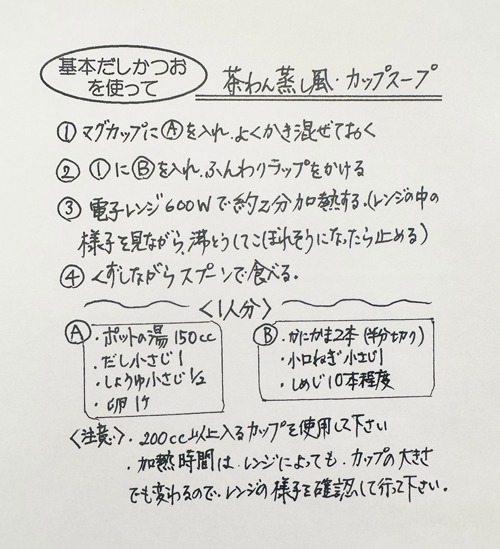 基本だしかつお
を使って
茶わん蒸し風・カップスープ
① マグカップにⒶを入れ、よくかき混ぜておく
② ①にⒷを入れ、ふんわりラップをかける
③ 電子レンジ600Wで約2分加熱する。(レンジの中の
様子を見ながら、沸とうしてこぼれそうになったら止める)
④ くずしながらスプーンで食べる。
〈1人分〉
Ⓐ
・ポットの湯 150cc
・だし小さじ1
・しょうゆ小さじ1/2
・卵1ケ
Ⓑ
・かにかま2本(半分切り)
・小口ねぎ小さじ1
・しめじ10本程度
〈注意〉・200cc以上入るカップを使用して下さい
・加熱時間は、レンジによっても、カップの大きさ
でも変わるので、レンジの様子を確認して行って下さい。